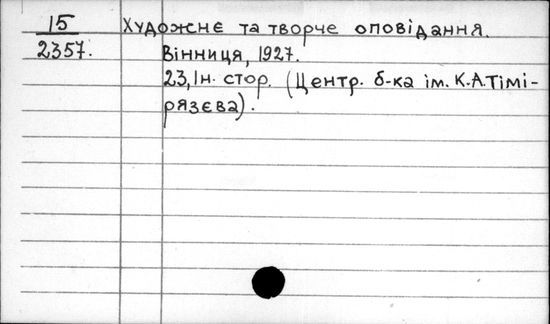 15
2357.
Художнє та творче оповідання.
Вінниця, 1927.
23, Ін. стор. (Центр. б-ка ім. К.А.Тімі-
рязєва).